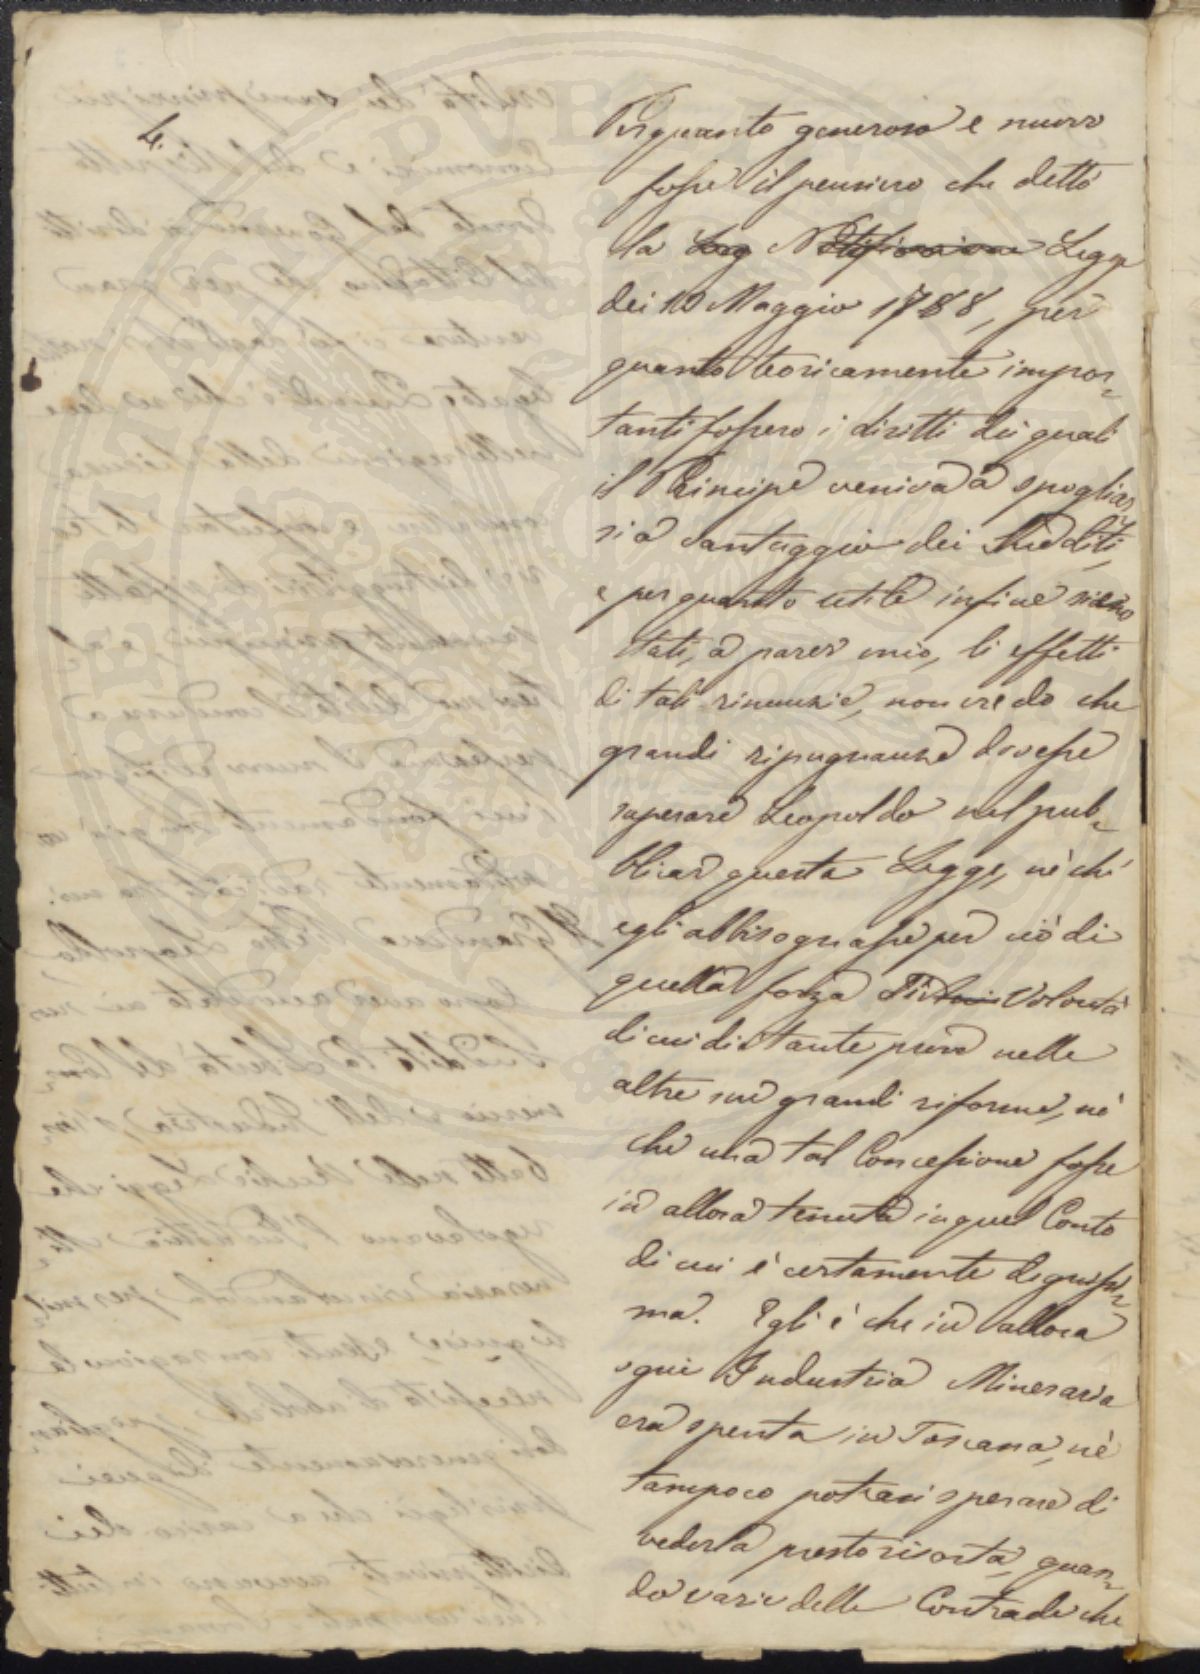 4.
Perquanto generoso e nuovo
fosse il pensiero che dettò
la Leg Notificazione Legge
dei 10 Maggio 1788, per
quanto teoricamente impor-
tanti fossero i diritti dei quali
il Principe veniva a spogliar
si a vantaggio dei Sudditi,
e per quanto utili infine sieno
stati, a parer mio, li effetti
di tali rinunzie, non credo che
grandi ripugnanze dovesse
superare Leopoldo nel pub-
blicar questa Legge, nè chè
egli abbisognasse per ciò di
quella forza di Volontà
di cui distante pure nelle
altre sue grandi riforme, nè
che una tal Concessione fosse
in allora tenuta in quel Conto
di cui è certamente degnissi-
ma. Egli è che in allora
ogni Industria Mineraria
era spenta in Toscana, nè
tampoco potevasi sperare di
vederla presto risorta, quan-
do varie delle Contrade che